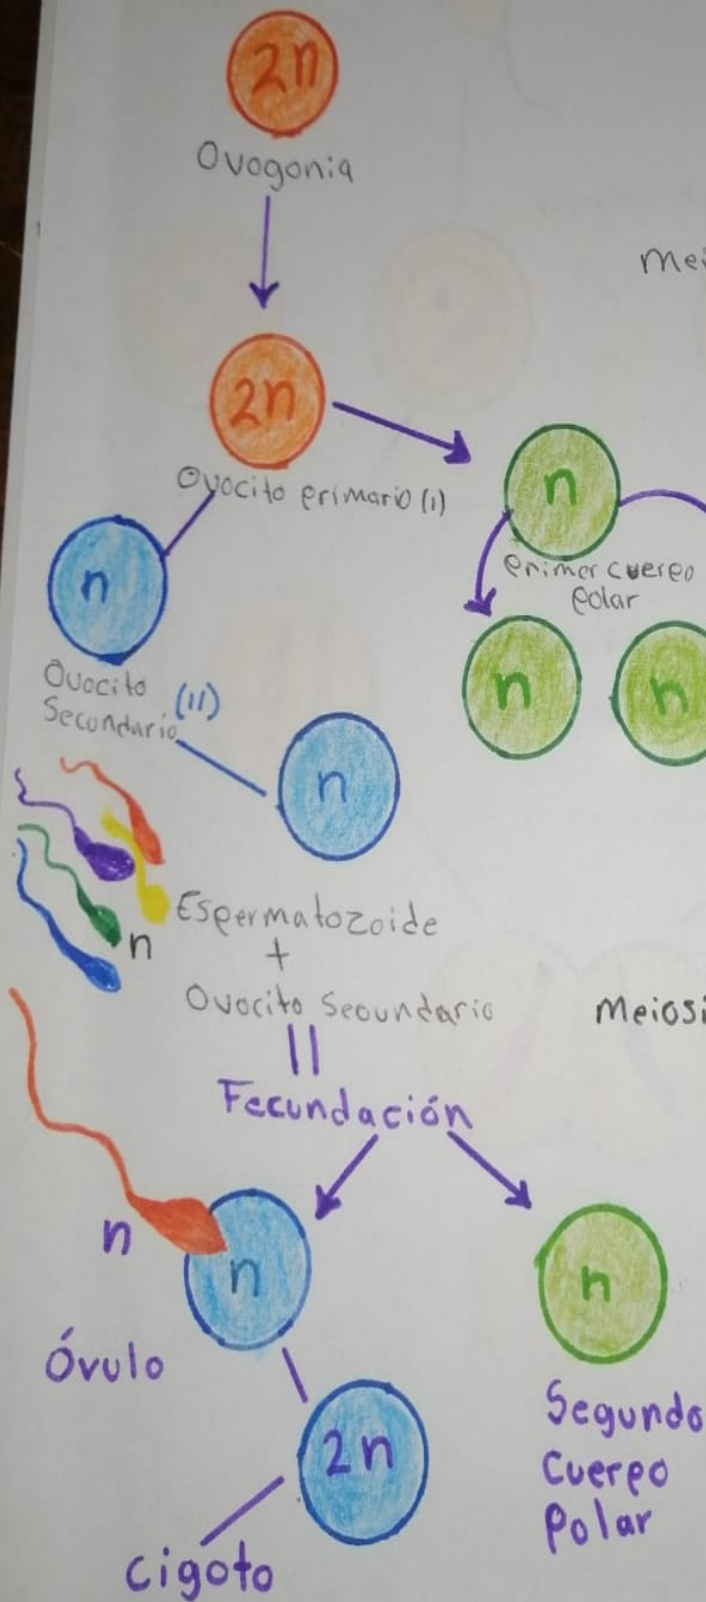 2n
Ovogonia
Mei
2n
Ovocito primario (I)
n
primer cuerpo
polar
n
Ovocito
Secundario (II)
n
n
n
Espermatozoide
n
+
Ovocito Secundario
Meiosi
||
Fecundación
n
n
n
Óvulo
2n
Segundo
Cuerpo
Polar
cigoto